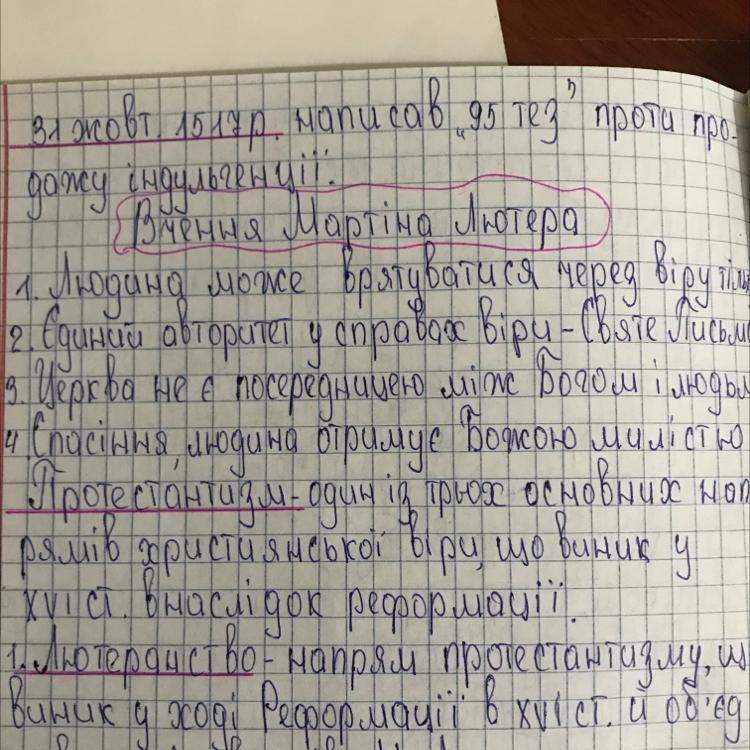 31 жовт. 1517р. написав „95 тез" проти про-
дажу індульгенції.
Вчення Мартіна Лютера
1. Людина може врятуватися через віру тільк
2. Єдиний авторитет у справах віри – Святе Письмо
3. Церква не є посередницею між Богом і людьм
4 Спасіння людина отримує Божою милістю
Протестантизм - один із трьох основних нап
рямів християнської віри, що виник у
XVI ст. внаслідок реформації.
1. Лютеранство - напрям протестантизму, що
виник у ході Реформації в XVI ст. й об'єд